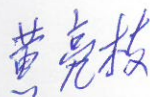 黄亮枝